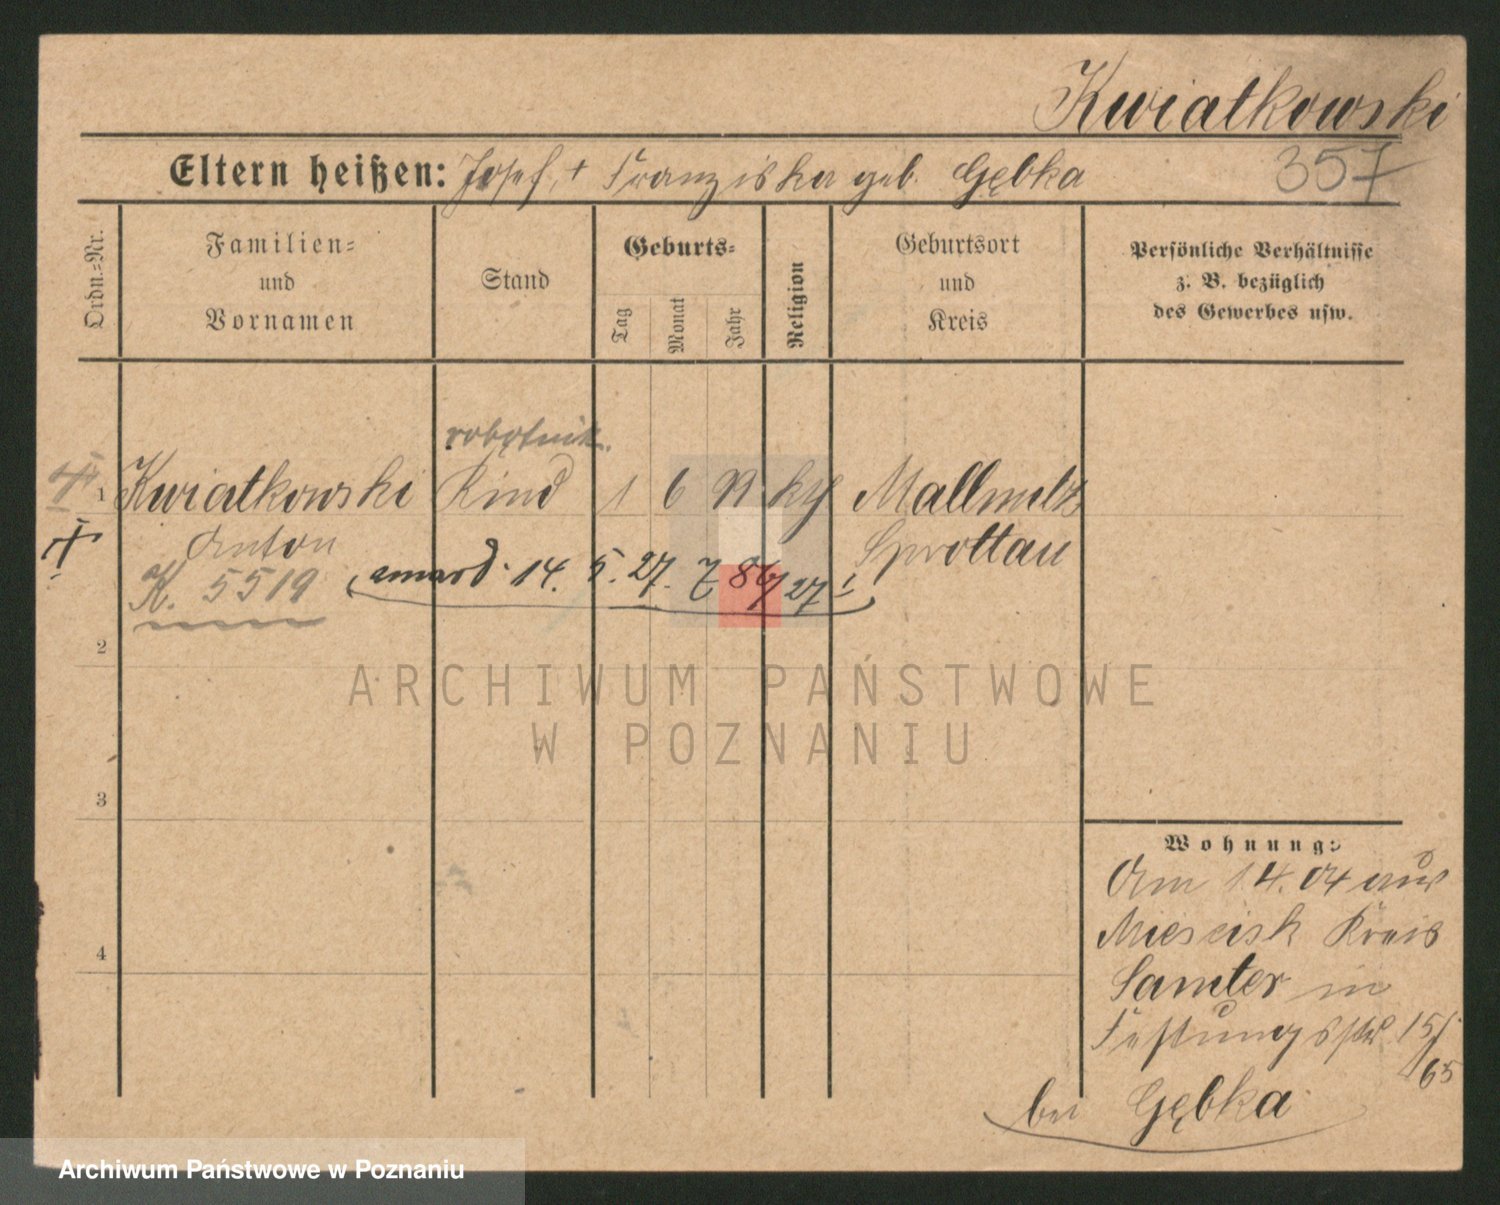 Kwiatkowski
357
Eltern heißen: Josef, + Franziska geb. Gębka
Ordn.=Nr.
Familien=
und
Vornamen
Stand
Geburts=
Tag
Monat
Jahr
Religion
Geburtsort
und
Kreis
Persönliche Verhältnisse
z. B. bezüglich
des Gewerbes usw.
robotnik
1 Kwiatkowski Kind 1 6 kth Mallmitz
Anton Sprottau
K. 5519 14. 5. 27.
2
ARCHIWUM PAŃSTWOWE
W POZNANIU
3
Wohnung:
Am 1.4.04 aus
Miescisk Kreis
4
Samter in
Festungsstr 15/
65
bei Gębka
Archiwum Państwowe w Poznaniu